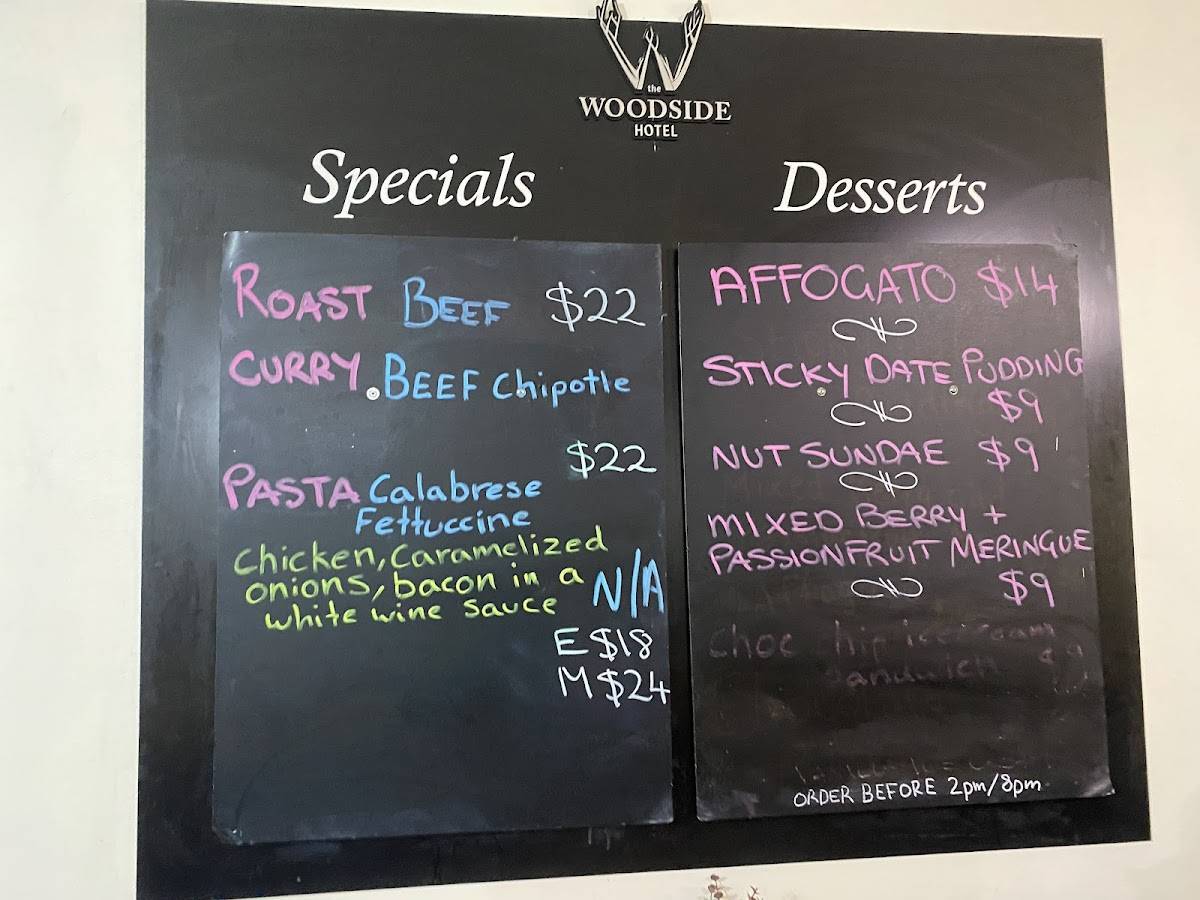 the
WOODSIDE
HOTEL
Specials
ROAST BEEF $22
CURRY BEEF Chipotle
$22
PASTA Calabrese
Fettuccine
Chicken, Caramelized
onions, bacon in a
white wine sauce N/A
E $18
M $24
Desserts
AFFOGATO $14
STICKY DATE PUDDING
$9
NUT SUNDAE $9
MIXED BERRY +
PASSIONFRUIT MERINGUE
$9
Choc hip ice
sandwich
ORDER BEFORE 2pm/8pm